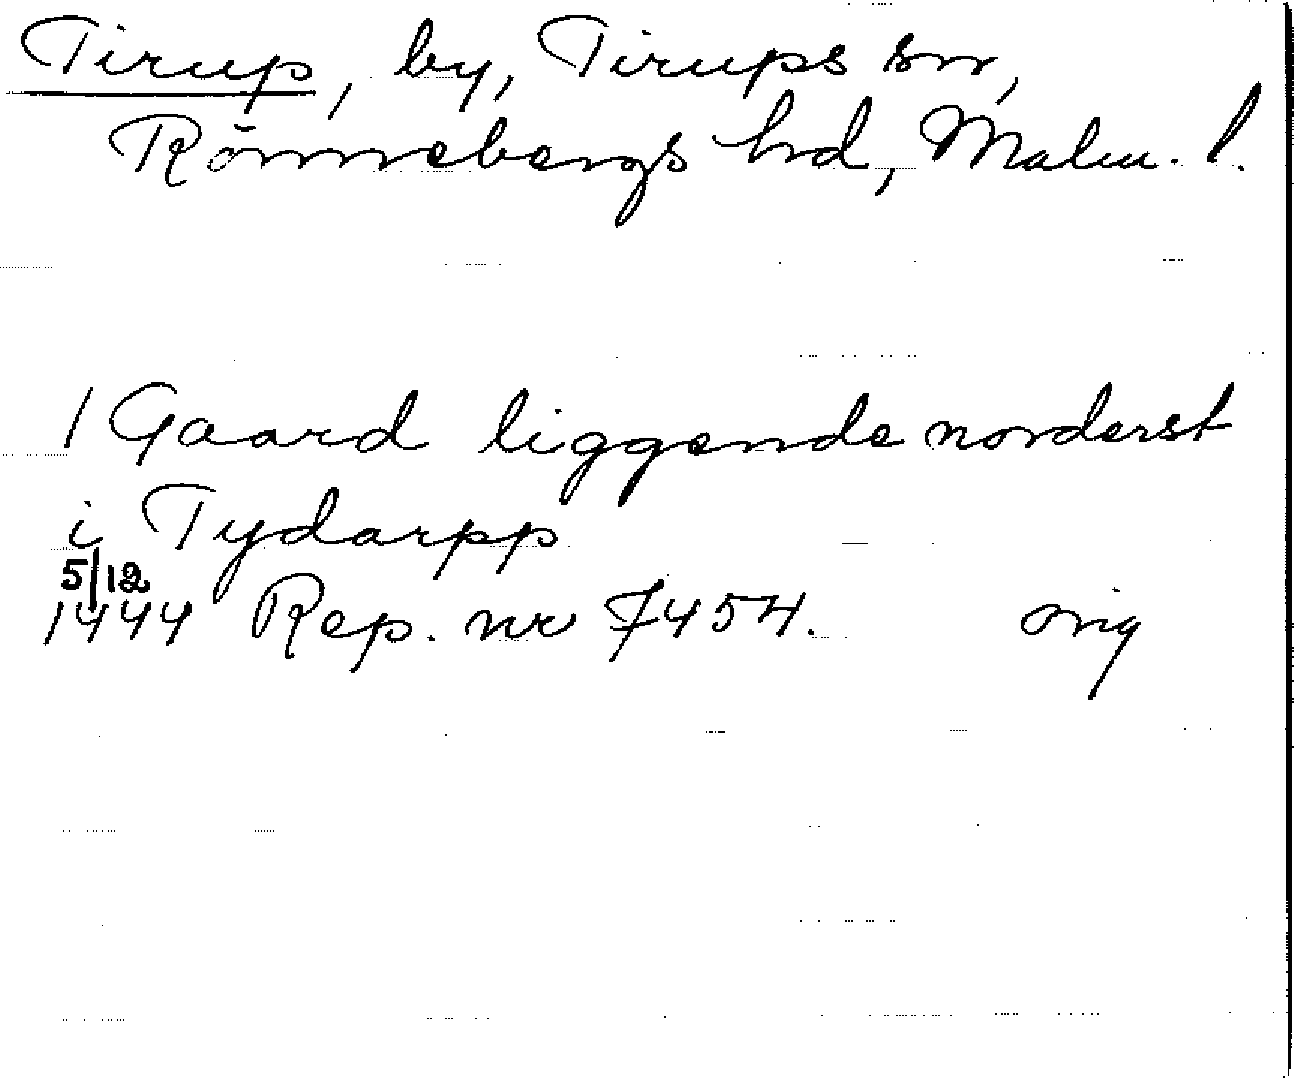 Tirup, by, Tirups sn,
Rönnebergs hrd, Malm. l.
1 Gaard liggende norderst
i Tydarpp
5/12
1444 Rep. nr 7454. orig